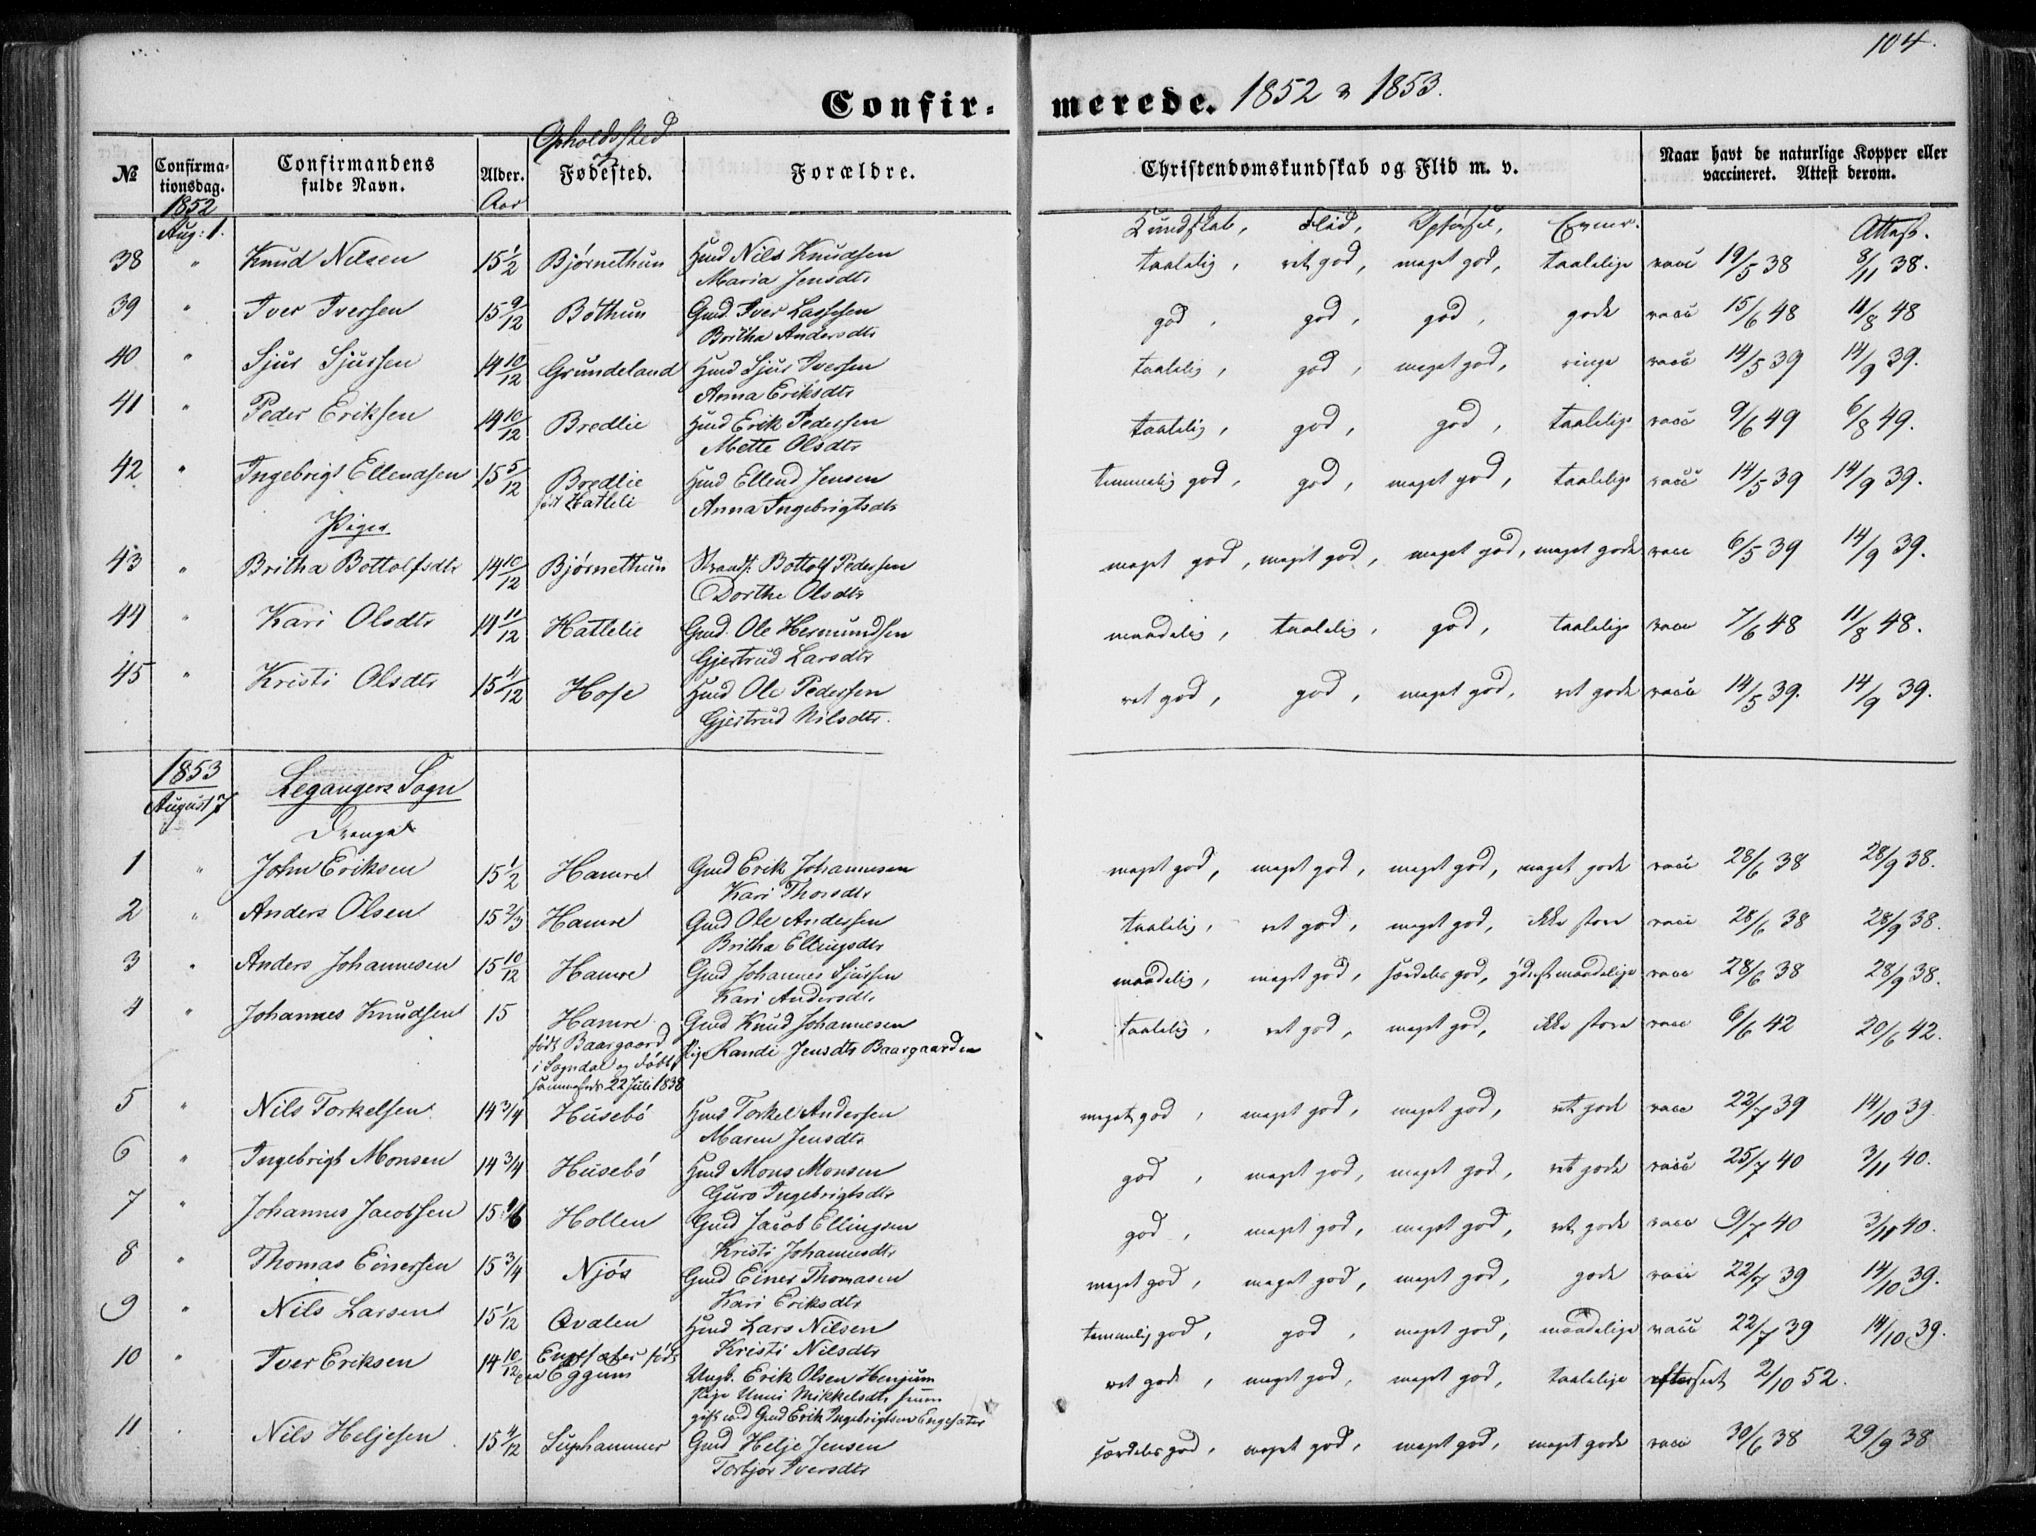 104.
Confirmerede. 1852 & 1853.
№ Confirmationsdag. Confirmandens fulde Navn. Alder. Opholdssted Fødested. Forældre. Christendomskundskab og Flid m. v. Naar havt de naturlige Kopper eller vaccineret. Attest derom.
1852 Aar
Aug: 1. Kundskab, Flid, Opførsel, Evner. Attest.
38 " Knud Nilsen 15 1/2 Bjørnethun Huud Nils Knudsen taalelig, ret god, meget god, taalelige vacc 19/5 38 8/11 38.
Maria Jensdtr
39 " Iver Iversen 15 9/12 Bøthun Gmd. Iver Lassesen god, god, god, gode vacc 15/6 48 11/8 48
Britha Andersdtr
40 " Sjur Sjursen 14 10/12 Grundeland Huud Sjur Iversen taalelig, god, meget god, ringe vacc 14/5 39 14/9 39.
Anna Eriksdtr
41 " Peder Eriksen 14 10/12 Bredlie Huud Erik Pedersen taalelig, god, god, taalelige vacc 9/6 49 6/8 49.
Mette Olsdtr
42 " Ingebrigt Ellendsen 15 5/12 Bredlie Huud Ellend Jensen temmelig god, god, meget god, taalelige vacc 14/5 39 14/9 39.
født Hatleli Anna Ingebrigtsdtr
Piger
43 " Britha Bottolfsdtr 14 10/12 Bjørnethun Strands. Bottolf Pedersen meget god, meget god, meget god, meget gode vacc 6/5 39 14/9 39.
Dorthe Olsdtr
44 " Kari Olsdtr 14 11/12 Hatlelie Gmd. Ole Hermundsen maadelig, taalelig, god, taalelige vacc 7/6 48 11/8 48.
Gjertrud Larsdtr
45 " Kristi Olsdtr 15 11/12 Hofe Huud Ole Pedersen ret god, god, meget god, ret gode vacc 14/5 39. 14/9 39.
Gjertrud Nilsdtr.
1853 Leganger Sogn
August 7
Drenge
1 " John Eriksen 15 1/2 Hamre Gmd Erik Johannesen meget god, meget god, meget god, meget gode vacc 28/6 38 28/9 38.
Kari Thorsdtr
2 " Anders Olsen 15 2/3 Hamre Gmd Ole Andersen taalelig, ret god, meget god, ikke store vacc 28/6 38 28/9 38.
Britha Ellingsdtr
3 " Anders Johannesen 15 10/12 Hamre Gmd Johannes Sjursen maadelig, meget god, særdeles god, ydest maadelige vacc 28/6 38 28/9 38.
Kari Andersdtr
4 " Johannes Knudsen 15 Hamre Gmd Knud Johannesen taalelig, ret god, meget god, ikke store vacc 6/6 42 20/6 42.
født Baargaard Pige Randi Jensdtr Baargaarden
i Sogndal og døbt
sammesteds 22 Juli 1838
5 " Nils Torkelsen 14 3/4 Husebø Huus Torkel Andersen meget god, meget god, meget god, ret gode vacc 22/7 39 14/10 39.
Maren Jensdtr
6 " Ingebrigt Monsen 14 3/4 Husebø Huud Mons Monsen god, meget god, meget god, ret gode vacc 25/7 40 3/11 40.
Guro Ingebrigtsdtr
7 " Johannes Jacobsen 15 1/6 Hollen Gmd Jacob Ellingsen god, meget god, meget god, ret gode vacc 9/7 40 3/11 40.
Kristi Johannesdtr
8 " Thomas Einersen 15 3/4 Njøs Gmd Einer Thomasen meget god, meget god, meget god, gode vacc 22/7 39 14/10 39.
Kari Eriksdtr
9 " Nils Larsen 15 1/12 Qvalen Huud Lars Nilsen temmelig god, god, meget god, maadelige vacc 22/7 39 14/10 39.
Kristi Nilsdtr
10 " Iver Eriksen 14 10/12 Engesæter født Ungk. Erik Olsen Henjum ret god, meget god, meget god, taalelige efterseet 2/10 52.
paa Eggum Pige Unni Mikkelsdtr Huum
gift med Gmd Erik Ingebrigtsen Engesæter
11 Nils Heljesen 15 4/12 Suphammer Gmd Helje Jensen særdeles god, meget god, meget god, meget gode vacc 30/6 38 29/9 38
Torbjør Iversdtr